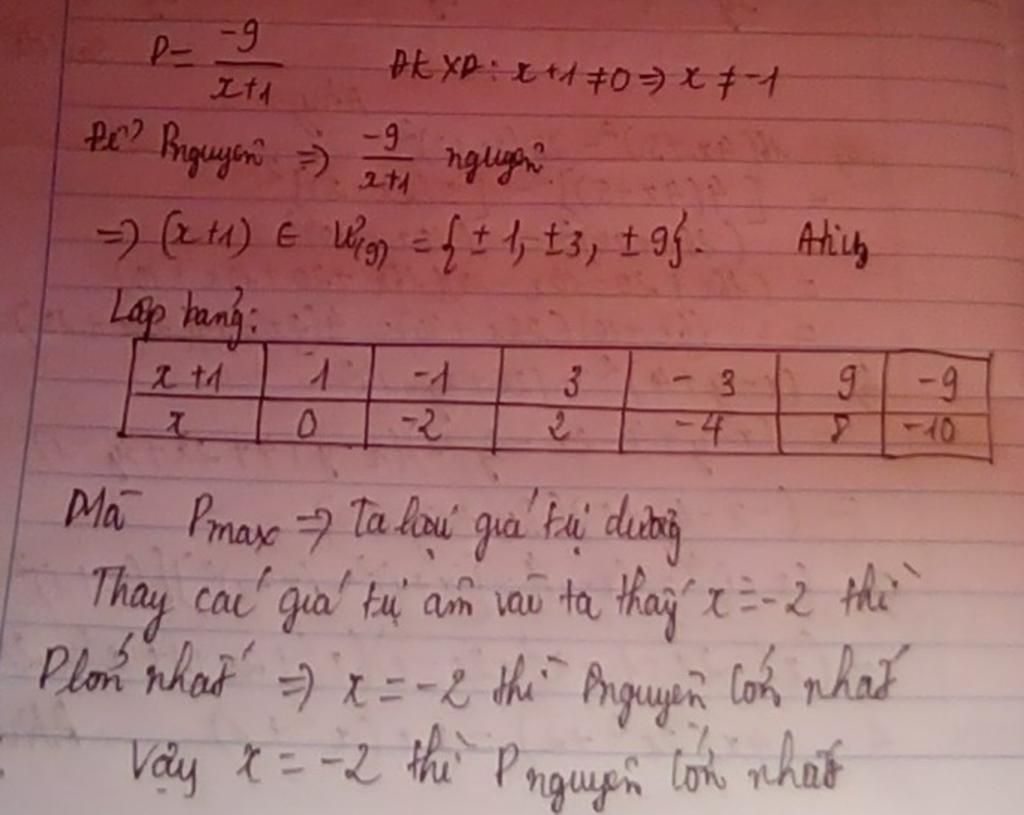 P = -9/(x+1) ĐKXĐ: x+1 ≠ 0 ⇒ x ≠ -1
Để P nguyên ⇒ -9/(x+1) nguyên
⇒ (x+1) ∈ Ư(9) = {±1, ±3, ±9}.
Lập bảng:
x+1 1 -1 3 -3 9 -9
x 0 -2 2 -4 8 -10
Mà Pmax ⇒ Ta loại giá trị dương
Thay các giá trị âm vào ta thấy x = -2 thì
P lớn nhất ⇒ x = -2 thì P nguyên lớn nhất
Vậy x = -2 thì P nguyên lớn nhất